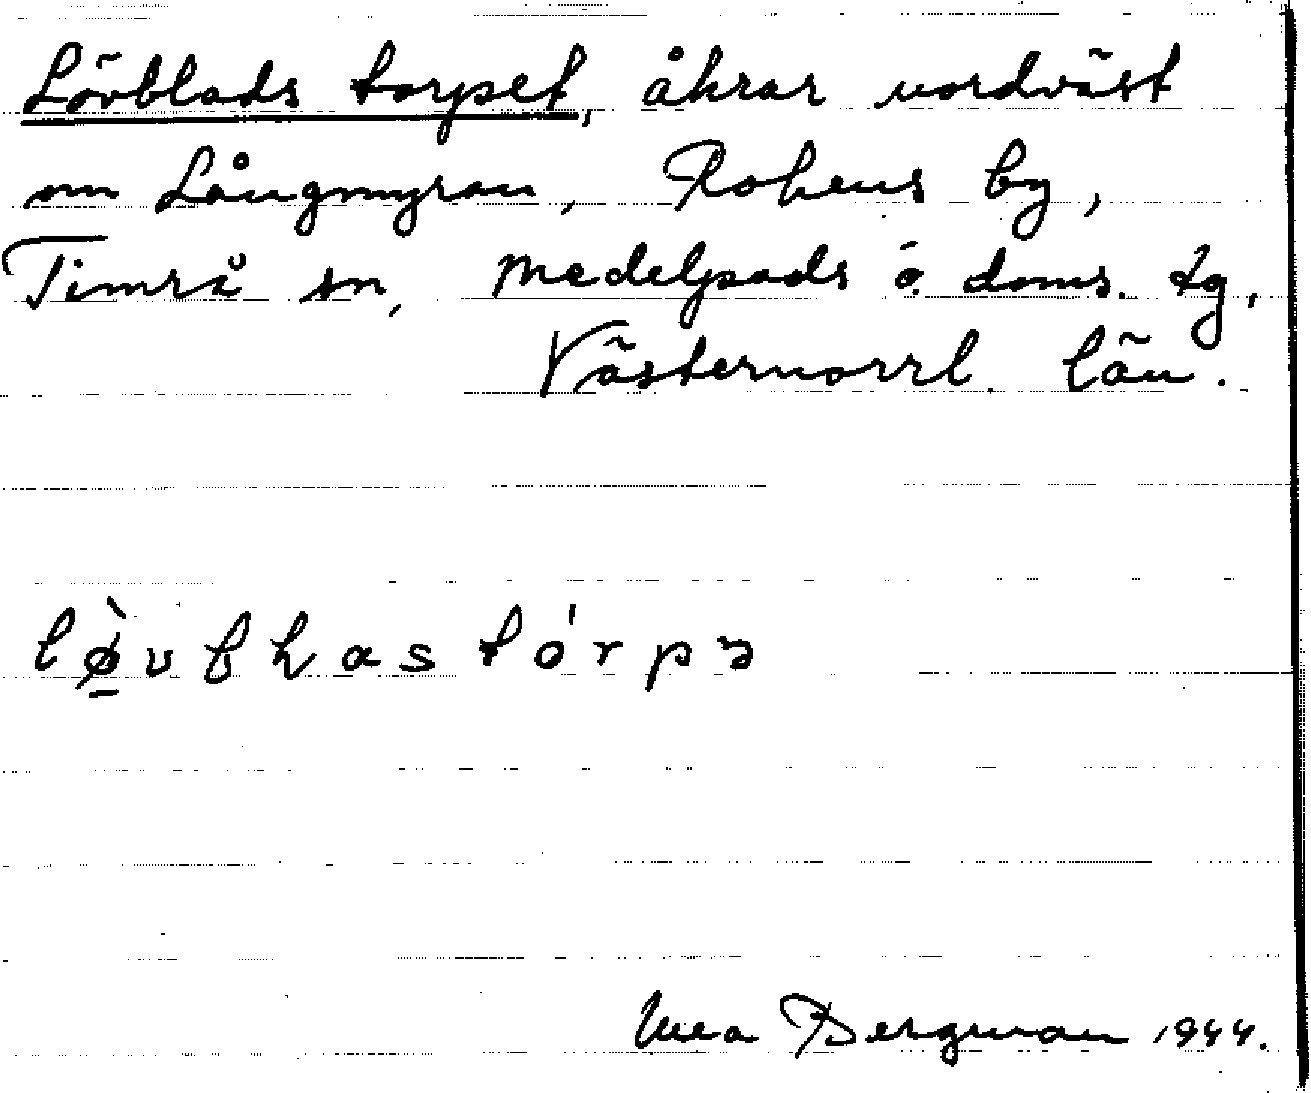 Lövblads torpet, åkrar nordväst
om Långmyran, Rokens by,
Timrå sn, Medelpads ö. doms. tg,
Västernorrl. län.
lø̠̀vbɦas tórpə
Bergman 1944.